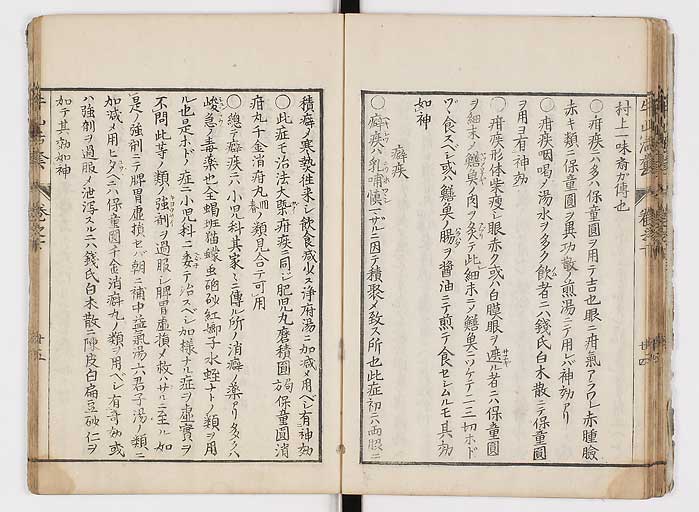 村上一味斎ガ傳也
○疳疾ニハ多ハ保童圓ヲ用テ吉也眼ニ疳氣アラワレ赤腫瞼
赤キ類ニハ保童圓ヲ異功散ノ煎湯ニテ用レバ神効アリ
○疳疾咽喝〆湯水ヲ多ク飲者ニハ錢氏白朮散ニテ保童圓
ヲ用ヨ有神効
○疳疾形体柴瘦シ眼赤ク或ハ白膜眼ヲ遮ル者ニハ保童圓
ヲ細末〆鱔魚ノ肉ヲ多テ此細末ヲ鱔魚ニツケテ二三切ホド
ヅヽ食スベシ或ハ鱔魚ノ腸ヲ醤油ニテ煎テ食セシムルモ其効
如神
癖疾
○癖疾ハ乳哺慎ミザルニ因テ積聚〆致ス所也此症初ニハ両脇ニ
積癖ノ寒𤍠往来シ飲食减少ス浄府湯ニ加减〆用ベシ有神効
○此症モ治法大槩疳疾ニ同シ肥児丸磨積圓 保童圓消
疳丸千金消疳丸ノ類見合テ可用
○總テ癖疾ニハ小児科其家〻ニ傳ル所ノ消癖ノ藥アリ多クハ
峻急ノ毒藥也全蝎斑猫蠓虫硇砂紅娘子水蛭ナトノ類ヲ用
ル也是ホドノ症ニ小児科ニ委テ治スベシ加様ナル症ヲ虚實ヲ
不問此等ノ類ノ強剤ヲ過服シ脾胃虚損〆救ハサルニ至ル如
是ノ強剤ニテ脾胃虚損セバ朝ニ補中益氣湯六君子湯ノ類ニ
加减〆用ヒタニハ保童圓千金消癖丸ノ類ヲ用ベシ有竒効或
ハ強剤ヲ過服〆泄瀉スルニハ錢氏白朮散ニ陳皮白扁豆砂仁ヲ
加テ其効如神